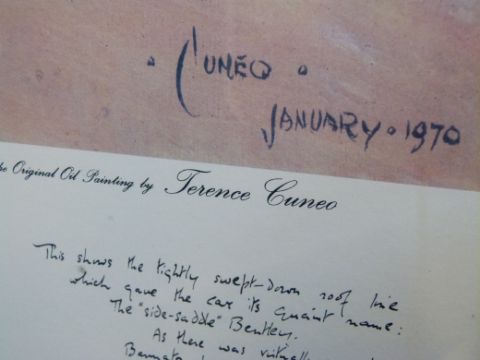 . CUNEO .
JANUARY . 1970
the Original Oil Painting by Terence Cuneo
This shows the tightly swept-down roof line
which gave the car its quaint name:
The "side-saddle" Bentley.
As there was virtually